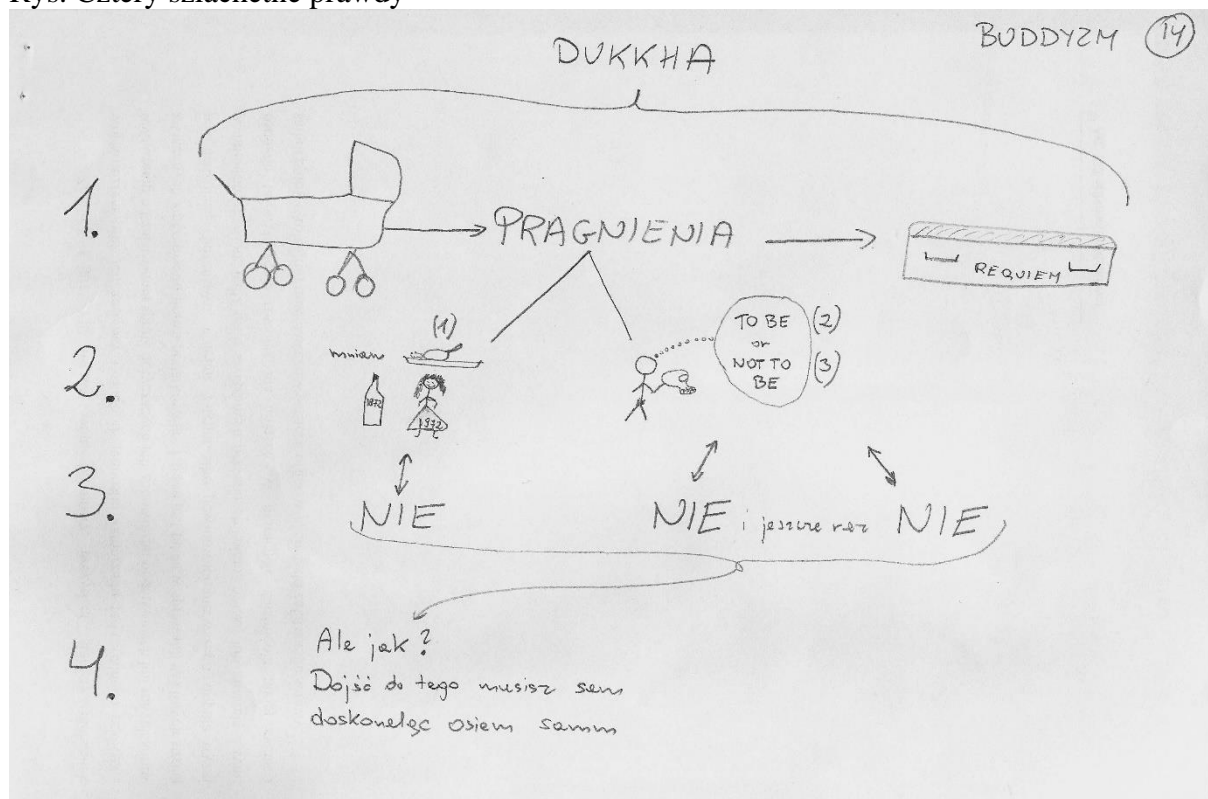 Rys. Cztery szlachetne prawdy
BUDDYZM 14
DUKKHA
1.
PRAGNIENIA
REQUIEM
2.
mniam
(1)
1872
1972
TO BE (2)
or
NOT TO (3)
BE
3.
NIE
NIE i jeszcze raz NIE
4.
Ale jak?
Dojść do tego musisz sam
doskonaląc osiem samm